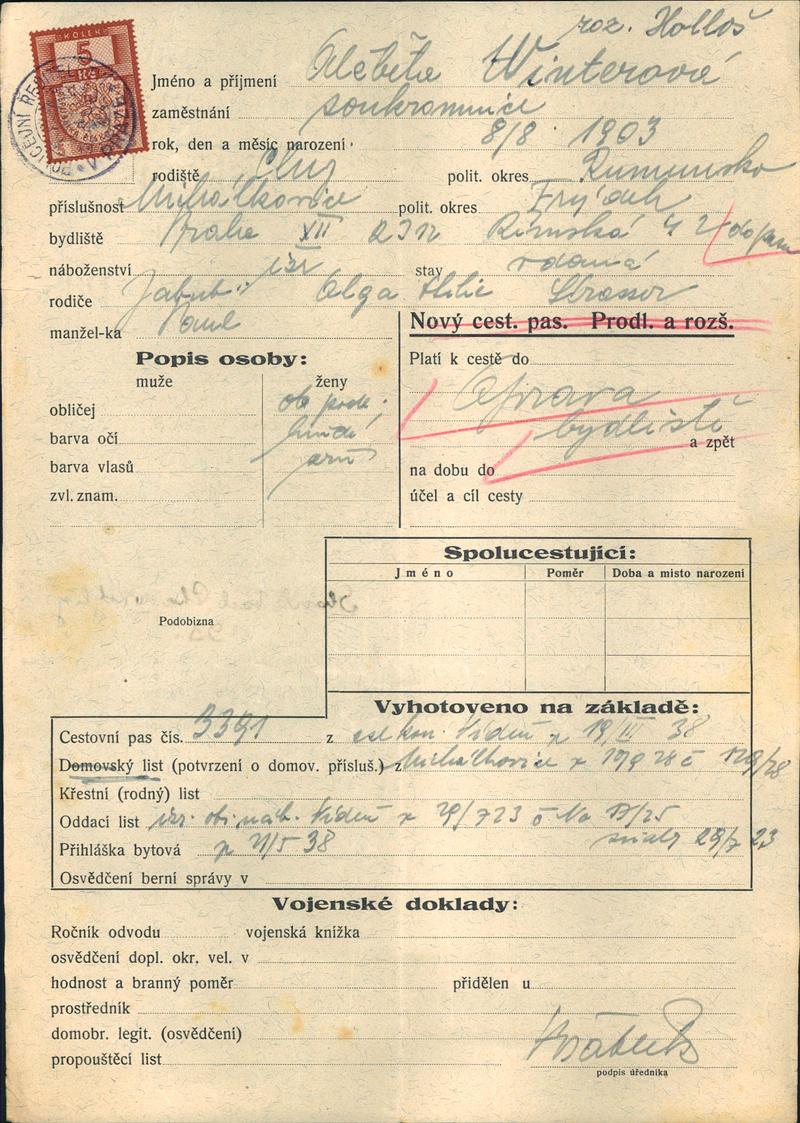 roz. Holloš
KOLEK
5
Kč
POLICEJNÍ ŘEDITEL V PRAZE
Jméno a příjmení Alžběta Winterová
zaměstnání soukromnice
rok, den a měsíc narození 8/8 1903
rodiště Cluj polit. okres Rumunsko
příslušnost Michálkovice polit. okres Frýdek
bydliště Praha XII Římská 42
náboženství izr stav vdaná
rodiče Jakub Olga Strasser
manžel-ka Paul
Nový cest. pas. Prodl. a rozš.
Popis osoby:
Platí k cestě do
muže ženy
Oprava
obličej
bydliště
barva očí hnědé
a zpět
barva vlasů
na dobu do
zvl. znam.
účel a cíl cesty
Spolucestující:
Jméno Poměr Doba a místo narození
Podobizna
Vyhotoveno na základě:
Cestovní pas čís. 3391 z kon. Vídeň z 19/III 38
Domovský list (potvrzení o domov. přísluš.) z Michálkovice
Křestní (rodný) list
Oddací list izr. ob. náb. Vídeň z 29/7 23 č
29/7 23
Přihláška bytová z 38
Osvědčení berní správy v
Vojenské doklady:
Ročník odvodu vojenská knížka
osvědčení dopl. okr. vel. v
hodnost a branný poměr přidělen u
prostředník
domobr. legit. (osvědčení)
propouštěcí list
podpis úředníka